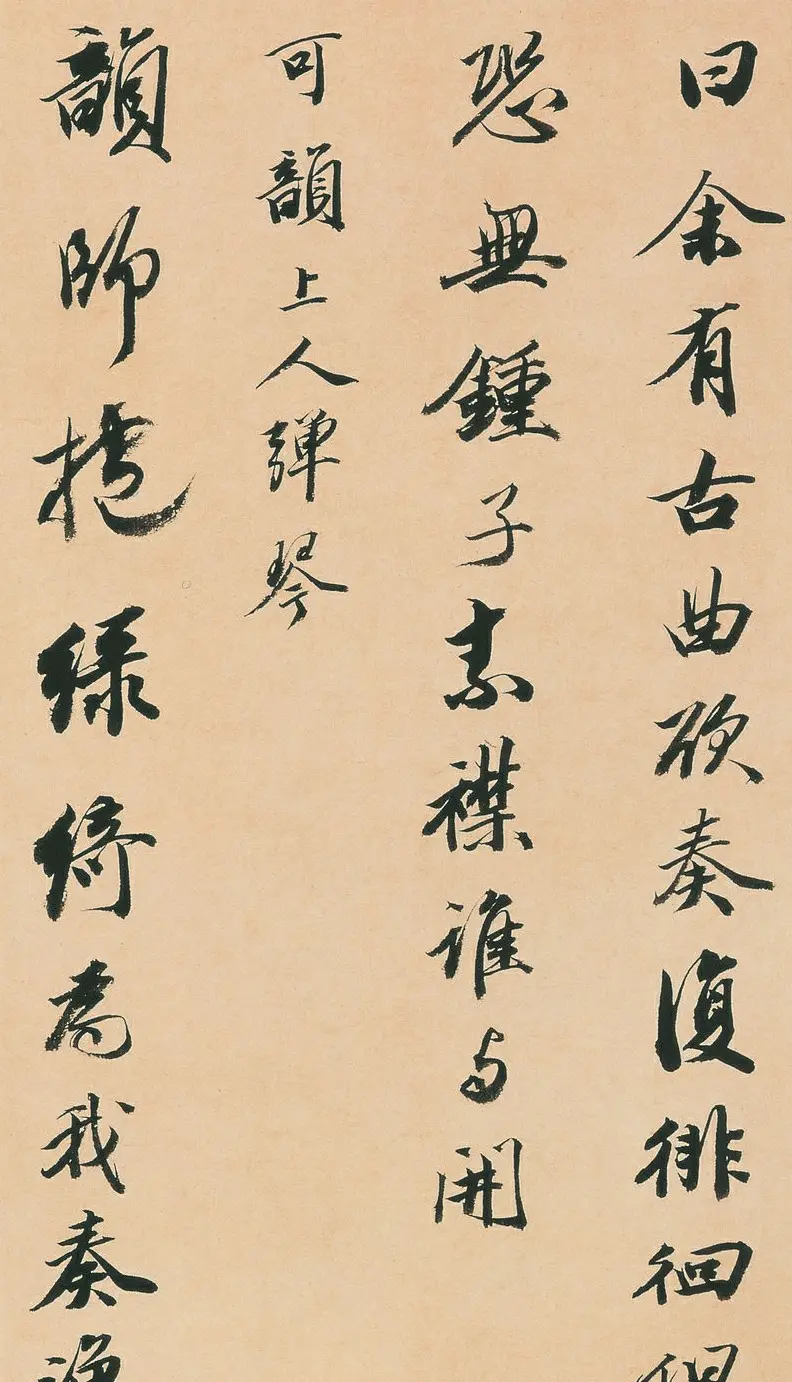 曰余有古曲欲奏復徘徊
恐無鍾子素襟誰与開
可韻上人彈琴
韻師抱綠綺為我奏